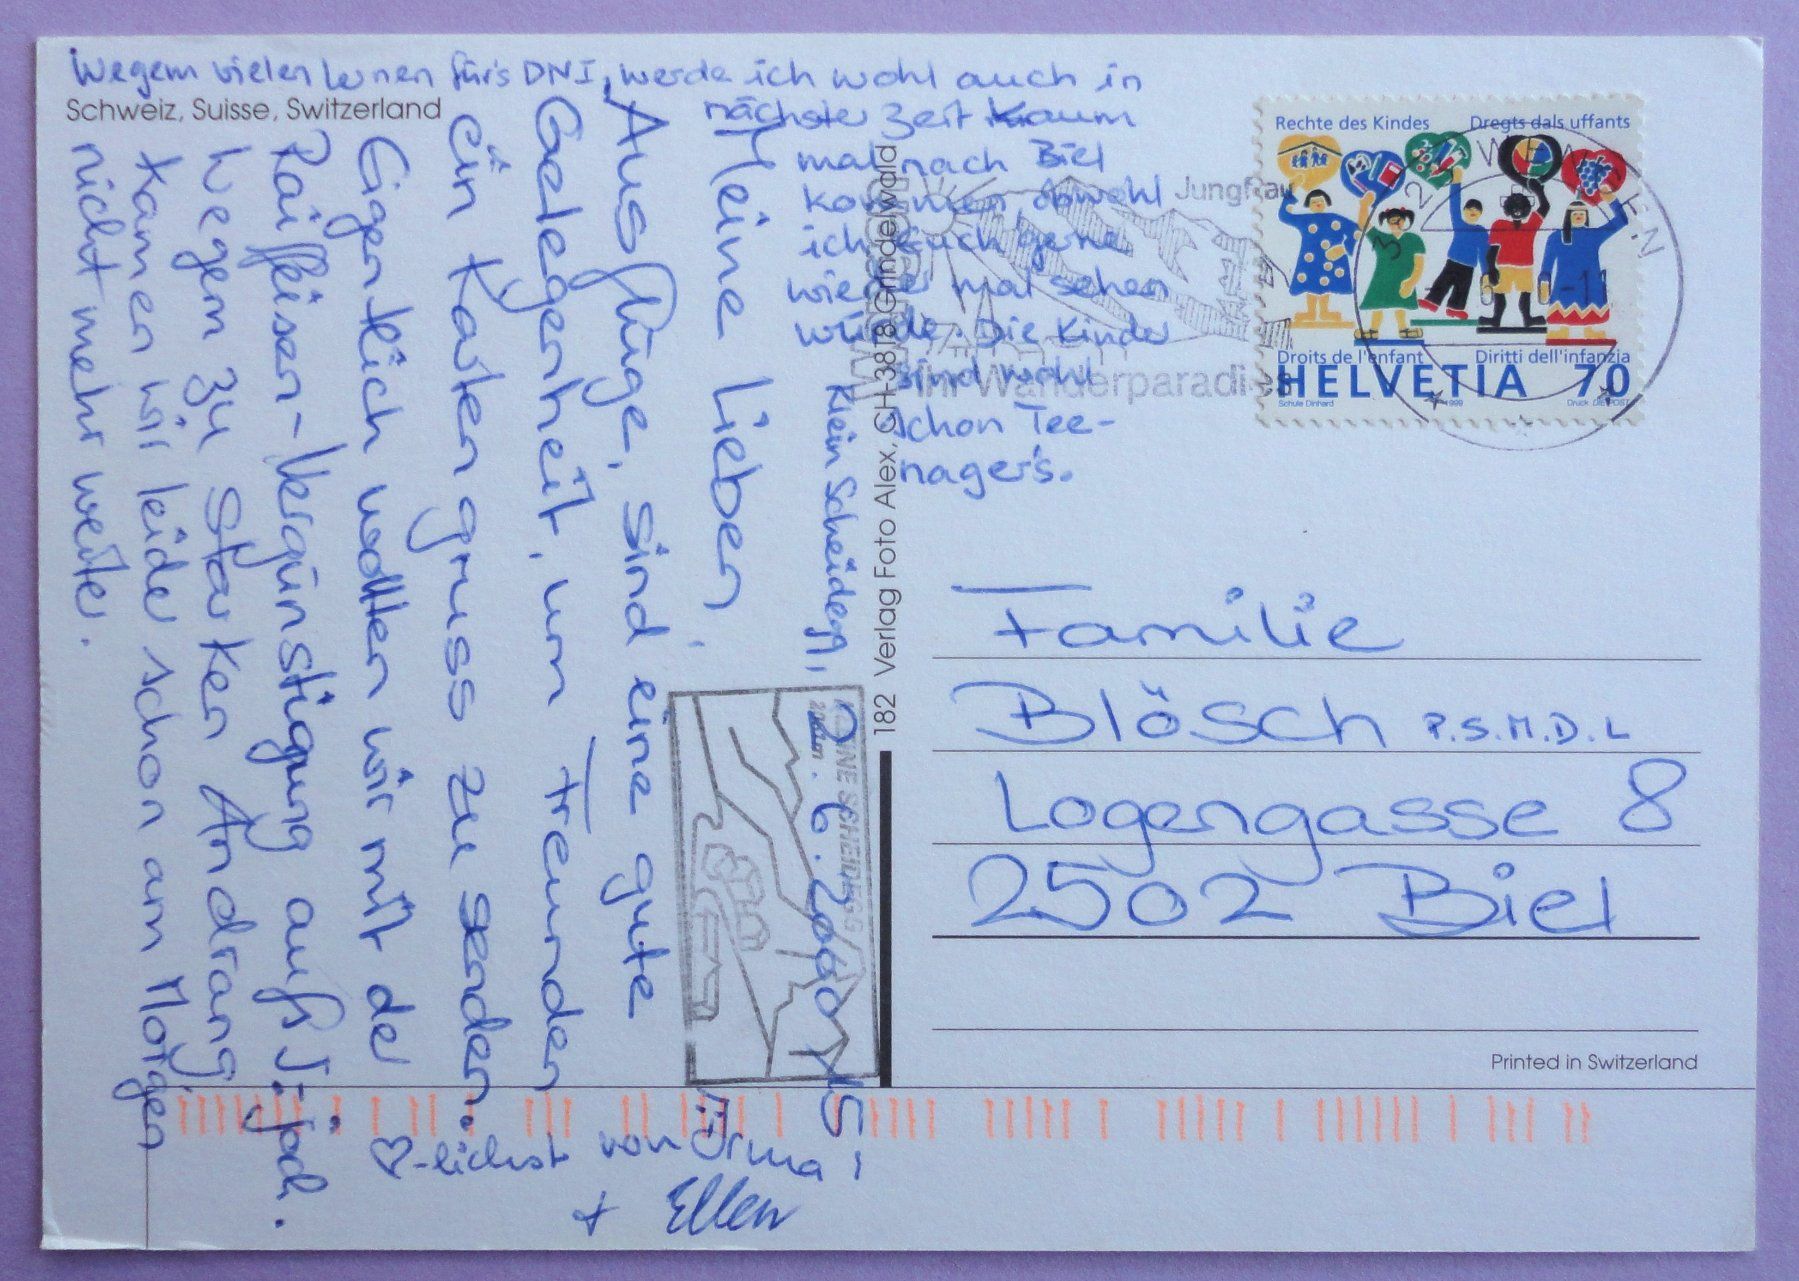 Wegem vielen lernen für's DNI, werde ich wohl auch in
nächster Zeit kaum
mal nach Biel
kommen, obwohl
ich Euch gerne
wieder mal sehen
würde. Die Kinder
sind wohl
schon Tee-
nager's.
Schweiz, Suisse, Switzerland
Klein Scheidegg,
2. 6. 2000
Meine Lieben,
Ausflüge, sind eine gute
Gelegenheit, um Freunden
ein Kartengruss zu senden.
Eigentlich wollten wir mit de
Raiffeisen-Vergünstigung aufs J-joch.
Wegem zu starken Andrang
kamen wir leider schon am Morgen
nicht mehr weiter.
♡-lichst von Irma
+ Ellen
182 Verlag Foto Alex, CH-3818 Grindelwald
KLEINE SCHEIDEGG
Jungfrau
WENGEN
Ihr Wanderparadies
WENGEN
Rechte des Kindes Dregts dals uffants
Droits de l'enfant Diritti dell'infanzia
HELVETIA 70
Schule Dinhard 1999 Druck DIE POST
Familie
Blösch P.S.M.D.L
Logengasse 8
2502 Biel
Printed in Switzerland